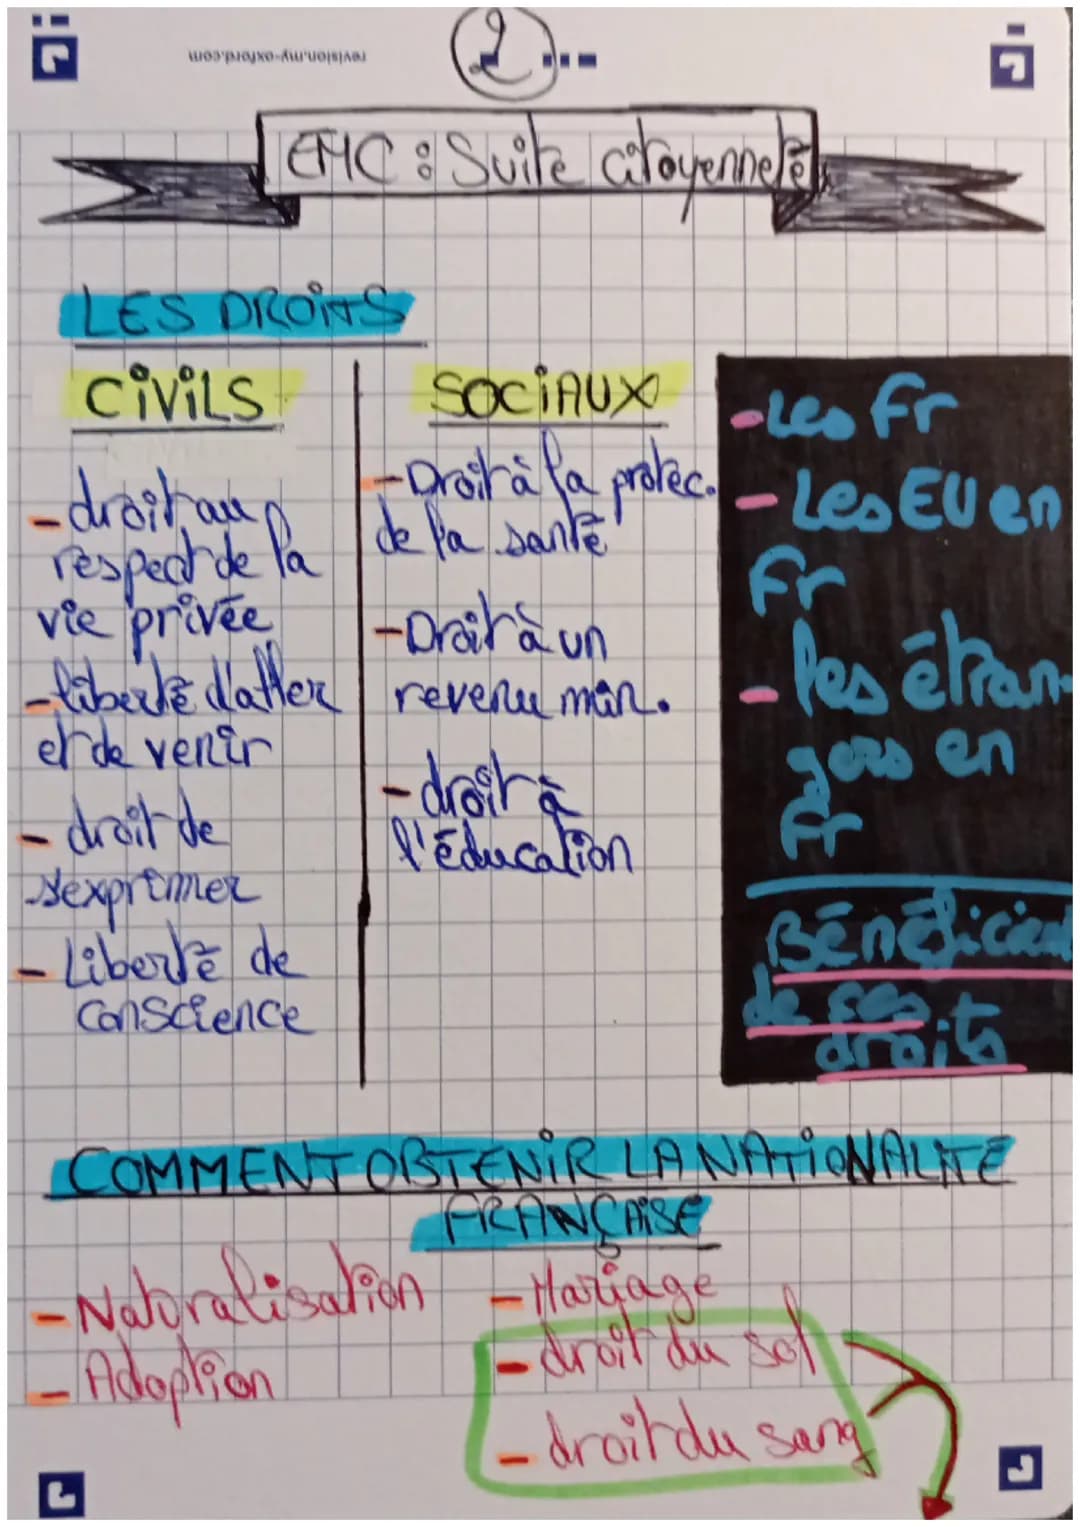 revision.my-oxford.com
2
EMC : Suite citoyenneté
LES DROITS
CIVILS
- droit au
respect de la
vie privée
- liberté d'aller
et de venir
- droit de
s'exprimer
- Liberté de
conscience
SOCIAUX
- Droit à la protec.
de la santé
- Droit à un
revenu min.
- droit à
l'éducation
- Les Fr
- Les EU en
Fr
- les étran-
gers en
Fr
Bénéficient
de ses
droits
COMMENT OBTENIR LA NATIONALITÉ
FRANÇAISE
- Naturalisation
- Adoption
- Mariage
- droit du sol
- droit du sang